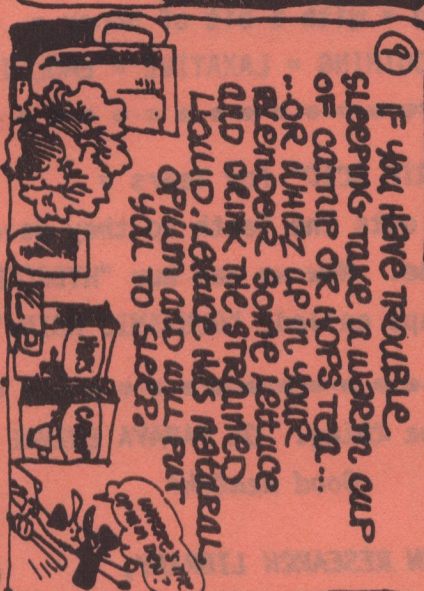 9
IF YOU HAVE TROUBLE
SLEEPING TAKE A WARM CUP
OF CATNIP OR HOPS TEA...
...OR WHIZZ UP IN YOUR
BLENDER SOME LETTUCE
AND DRINK THE STRAINED
LIQUID. LETTUCE HAS NATURAL
OPIUM AND WILL PUT
YOU TO SLEEP
HOPS
CATNIP
WHERE'S THE
OPIUM DEN?